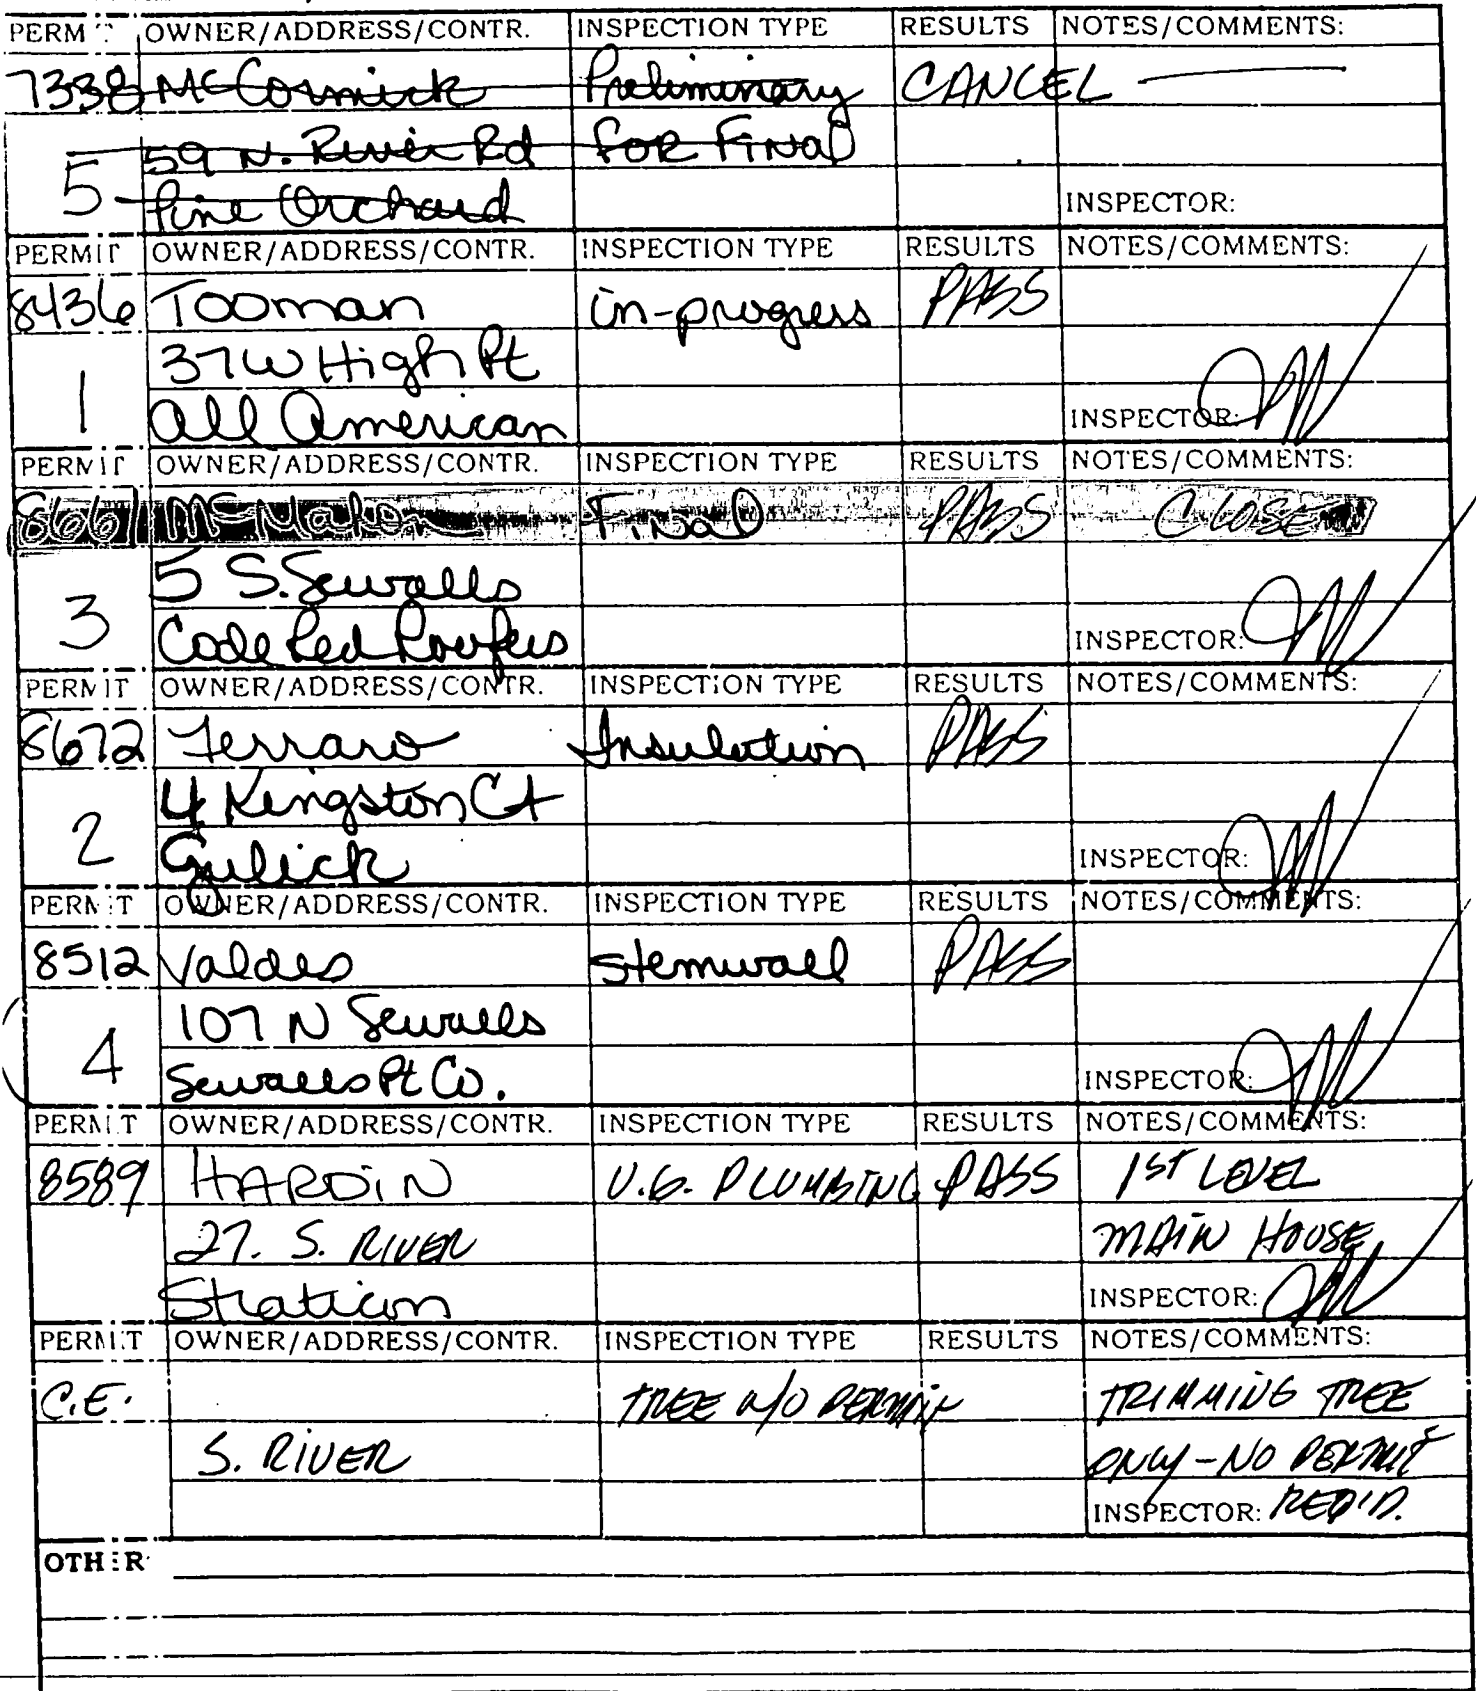 PERMIT OWNER/ADDRESS/CONTR. INSPECTION TYPE RESULTS NOTES/COMMENTS:
7338 McCormick Preliminary CANCEL
59 N. River Rd FOR FINAL
5 Pine Orchard INSPECTOR:
PERMIT OWNER/ADDRESS/CONTR. INSPECTION TYPE RESULTS NOTES/COMMENTS:
8436 Tooman in-progress PASS
37 W High Pt
1 All American INSPECTOR:
PERMIT OWNER/ADDRESS/CONTR. INSPECTION TYPE RESULTS NOTES/COMMENTS:
8661 McMahon Final PASS CLOSE
5 S. Sewalls
3 Code Red Roofers INSPECTOR:
PERMIT OWNER/ADDRESS/CONTR. INSPECTION TYPE RESULTS NOTES/COMMENTS:
8672 Ferraro Insulation PASS
4 Kingston Ct
2 Gulick INSPECTOR:
PERMIT OWNER/ADDRESS/CONTR. INSPECTION TYPE RESULTS NOTES/COMMENTS:
8512 Valdes Stemwall PASS
107 N Sewalls
4 Sewalls Pt Co. INSPECTOR:
PERMIT OWNER/ADDRESS/CONTR. INSPECTION TYPE RESULTS NOTES/COMMENTS:
8589 HARDIN U.G. PLUMBING PASS 1ST LEVEL
27. S. RIVER MAIN HOUSE
Straticon INSPECTOR:
PERMIT OWNER/ADDRESS/CONTR. INSPECTION TYPE RESULTS NOTES/COMMENTS:
C.E. TREE W/O PERMIT TRIMMING TREE
S. RIVER ONLY - NO PERMIT
INSPECTOR: REQ'D.
OTHER